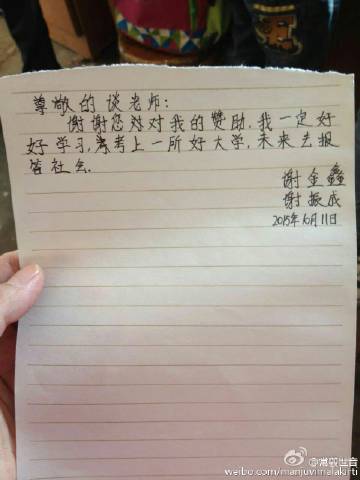 尊敬的谈老师:
谢谢您对对我的赞助,我一定好
好学习,考上一所好大学,未来去报
答社会.
谢金鑫
谢振成
2015年10月11日
@常观世音
weibo.com/manjuvimalakirti